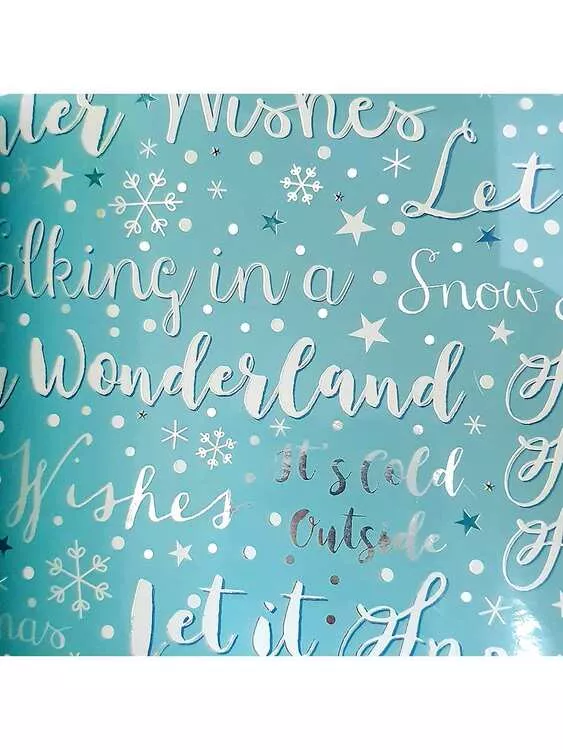 nter Wishes
Let
alking in a
Snow
Wonderland
It's Cold
Wishes
Outside
mas
Let it Sno